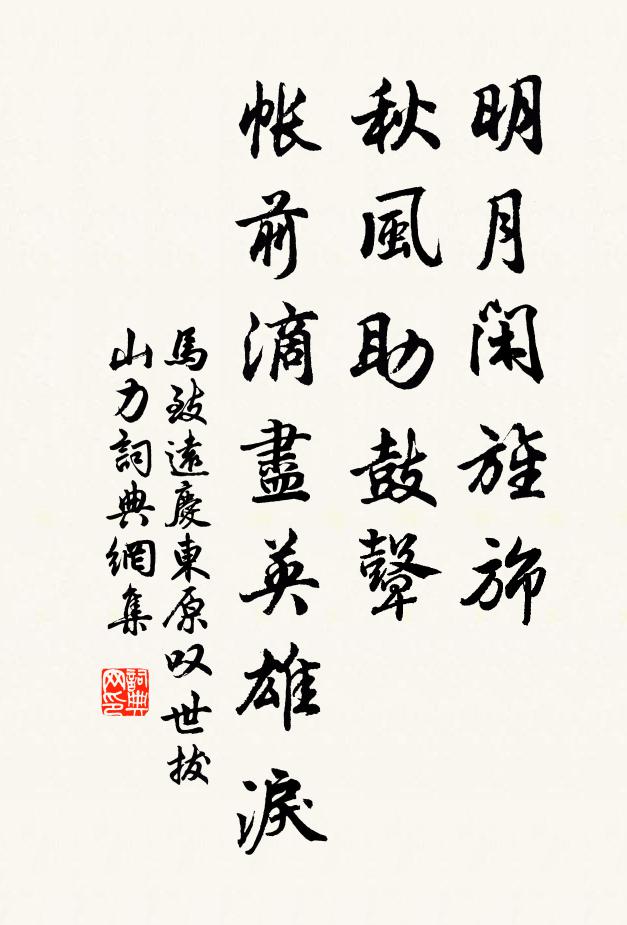 明月閑旌斾
秋風助鼓鼙
帳前滴盡英雄淚
馬致遠慶東原叹世拔
山力詞典網集
詞典
网印